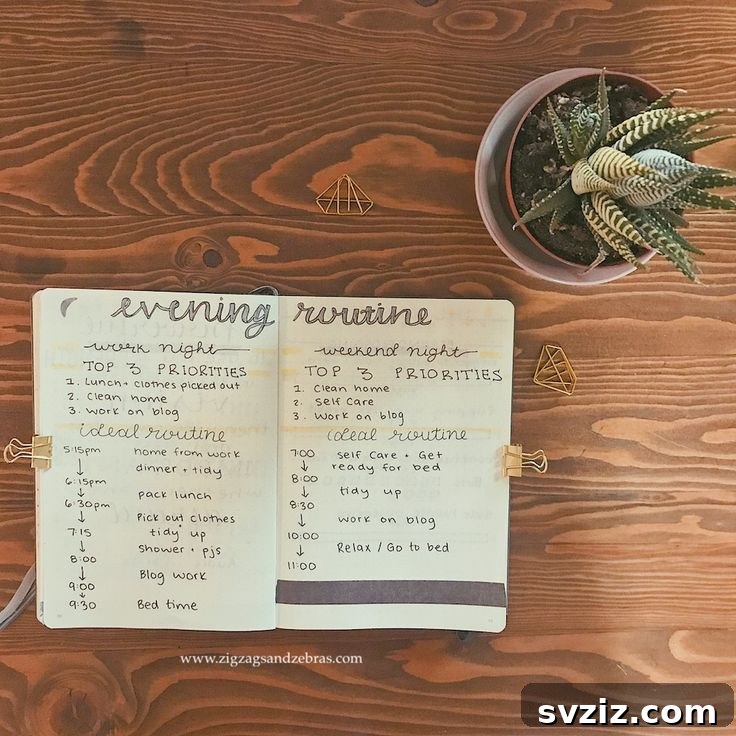 evening routine
work night
TOP 3 PRIORITIES
1. Lunch + clothes picked out
2. Clean home
3. Work on blog
ideal routine
5:15pm home from work
dinner + tidy
6:15pm
pack lunch
6:30pm
Pick out clothes
7:15 tidy up
shower + pjs
8:00
Blog work
9:00
9:30 Bed time
weekend night
TOP 3 PRIORITIES
1. Clean home
2. Self Care
3. Work on blog
ideal routine
7:00 Self Care + Get
ready for bed
8:00
tidy up
8:30
work on blog
10:00
Relax / Go to bed
11:00
www.zigzagsandzebras.com
svziz.com